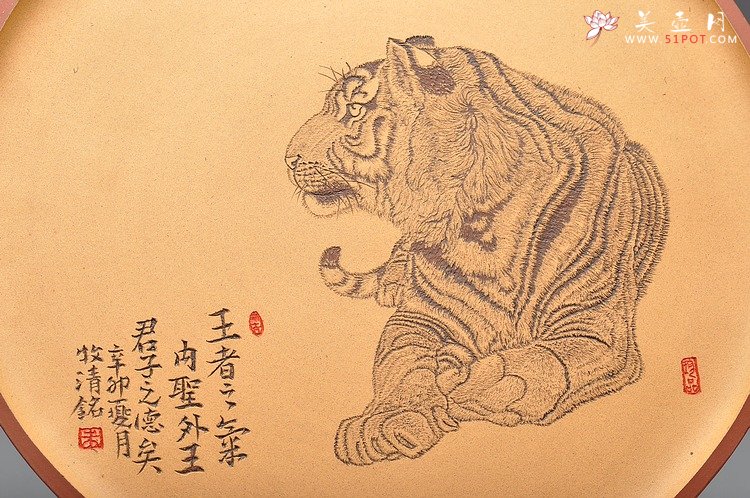 美壶月
WWW.51POT.COM
王者之氣
内聖外王
君子之德矣
辛卯夏月
牧清銘